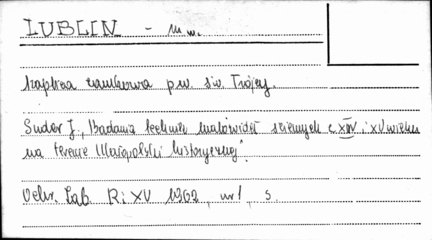 LUBLIN - m.w.
kaplica zamkowa p.w. św. Trójcy
Suder J., "Badania techniki malowideł ściennych c. XIV i XV wieku
na terenie Małopolski historycznej".
Ochr. Zab. R: XV 1962, nr 1, s.